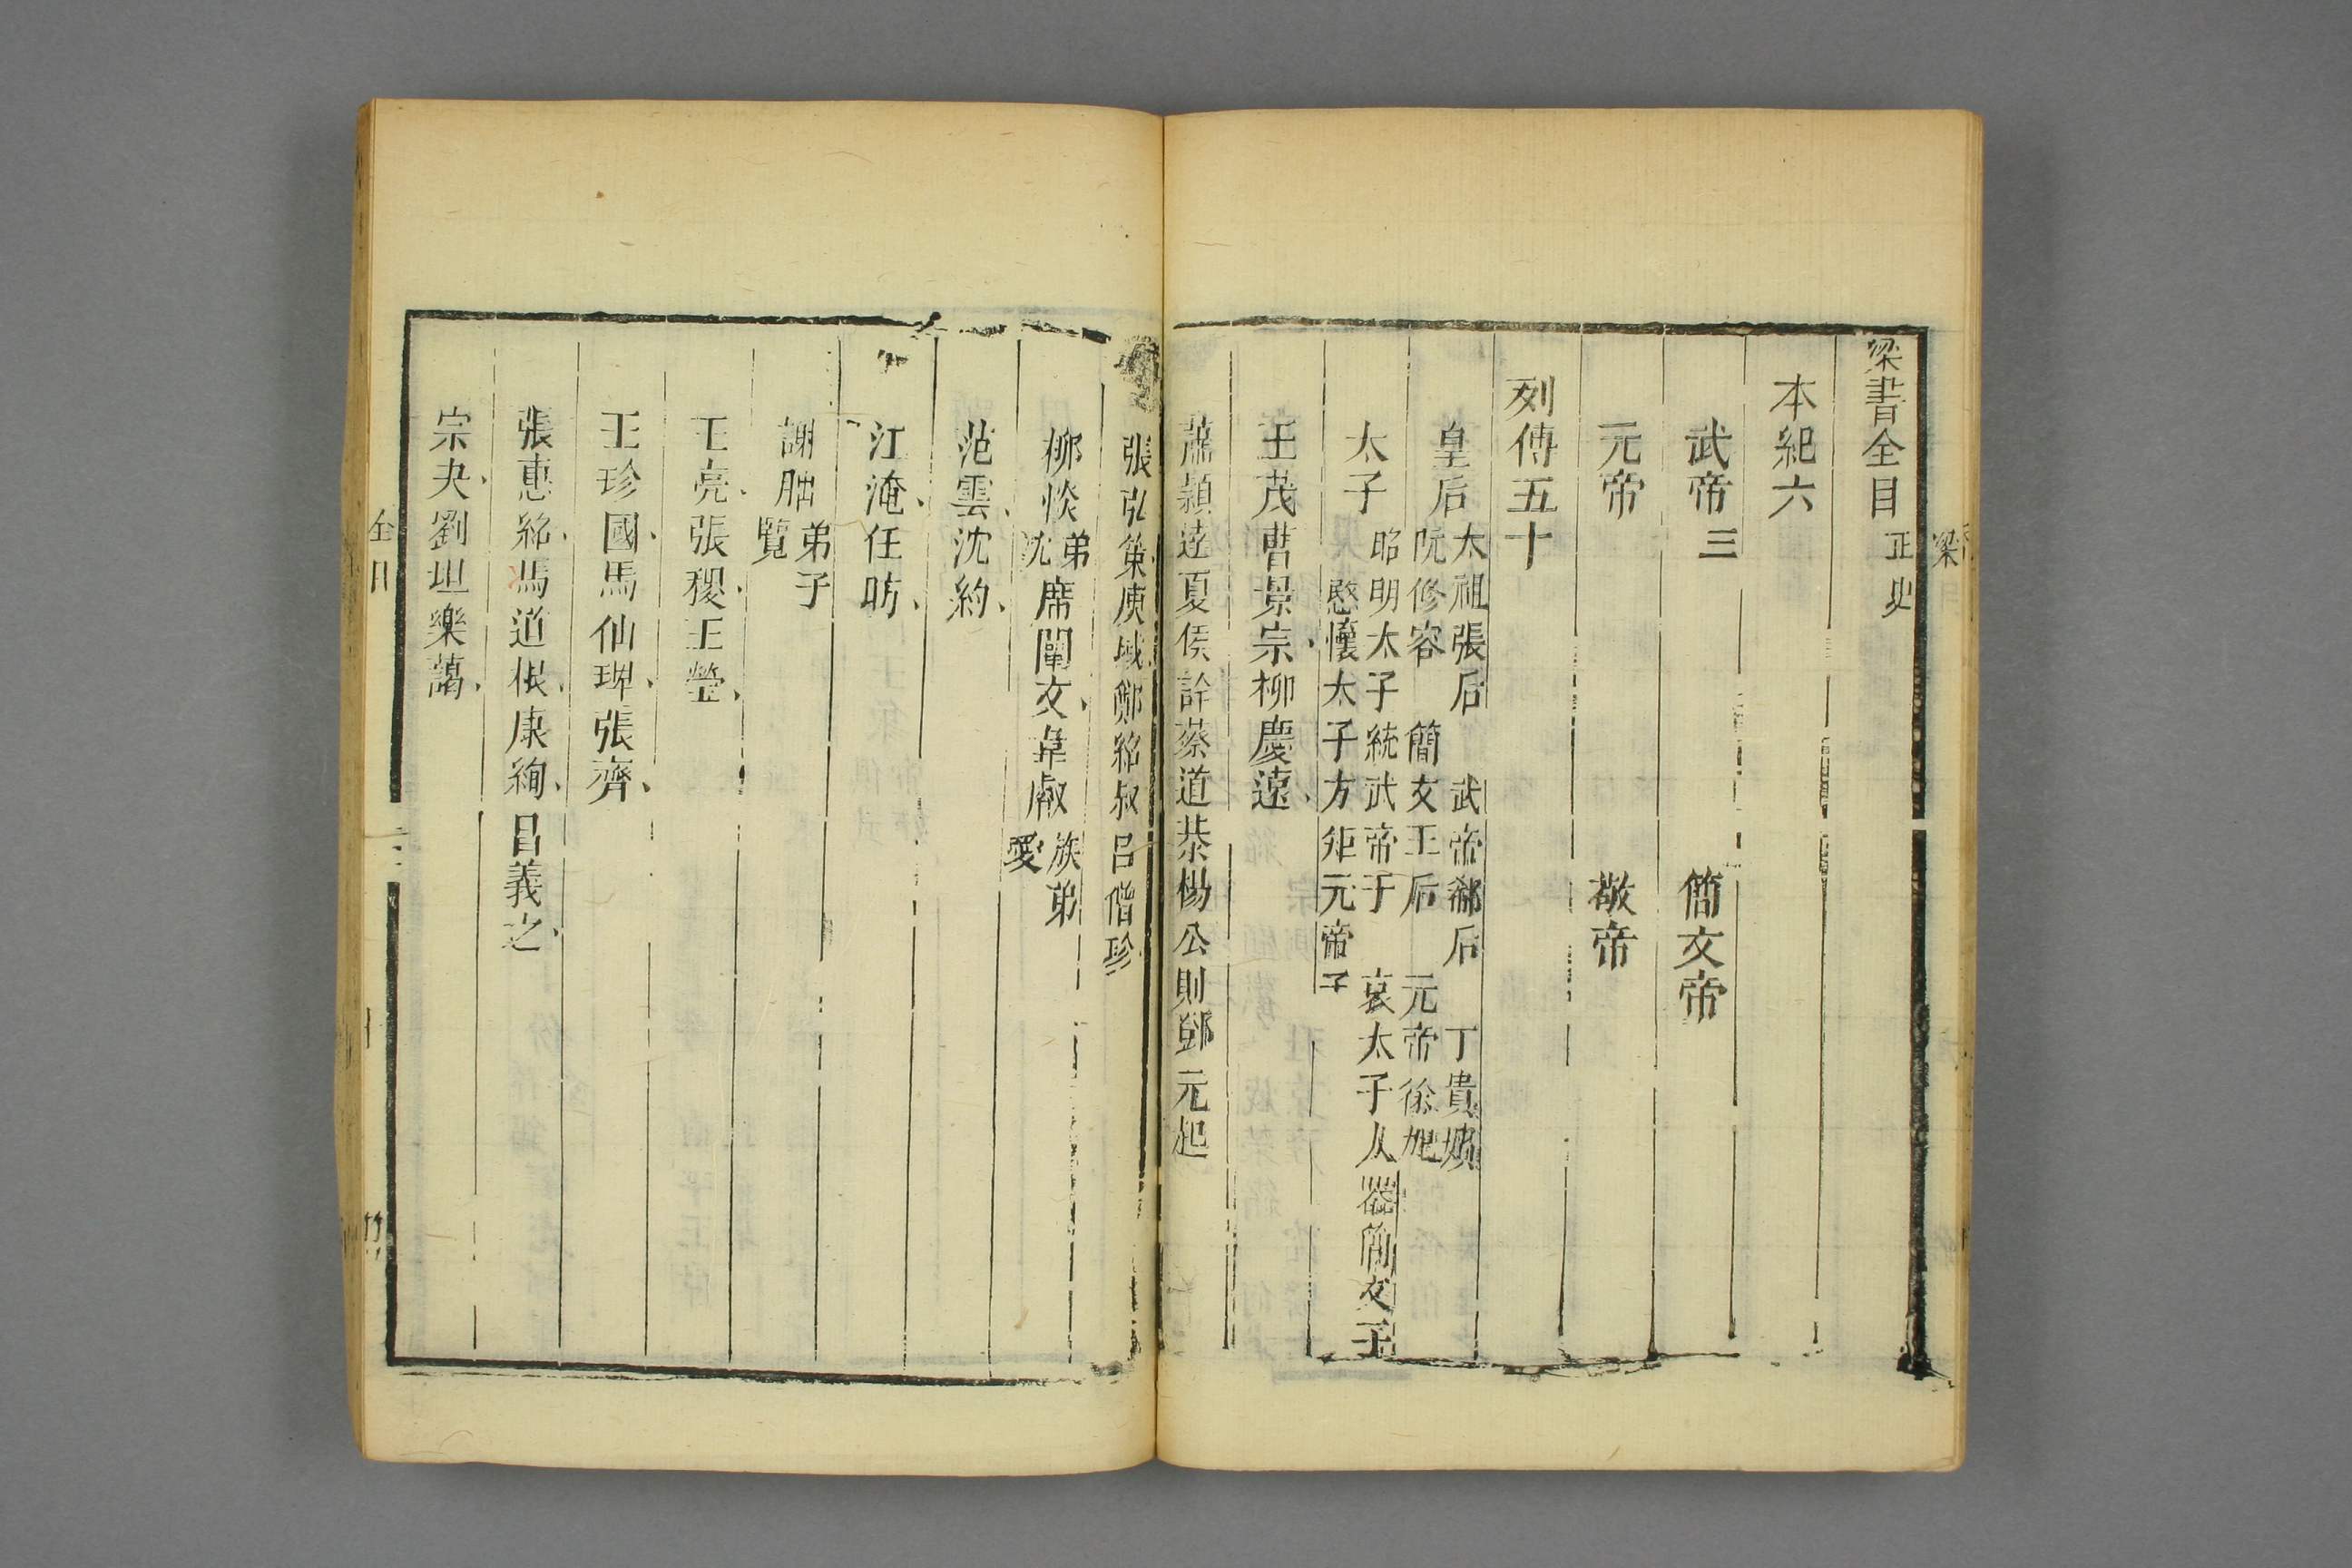 梁書全目 正史
本紀六
武帝三 簡文帝
元帝 敬帝
列傳五十
皇后 太祖張后 武帝郗后 丁貴嬪
阮修容 簡文王后 元帝徐妃
太子 昭明太子統武帝子 哀太子大器簡文子
愍懷太子方矩元帝子
王茂曹景宗柳慶遠
蕭穎達夏侯詳蔡道恭楊公則鄧元起
張弘策庾域鄭紹叔呂僧珍
柳惔弟忱席闡文韋叡族弟愛
范雲沈約
江淹任昉
謝朏弟子覽
王亮張稷王瑩
王珍國馬仙琕張齊
張惠紹馮道根康絢昌義之
宗夬劉坦樂藹
全目
梁